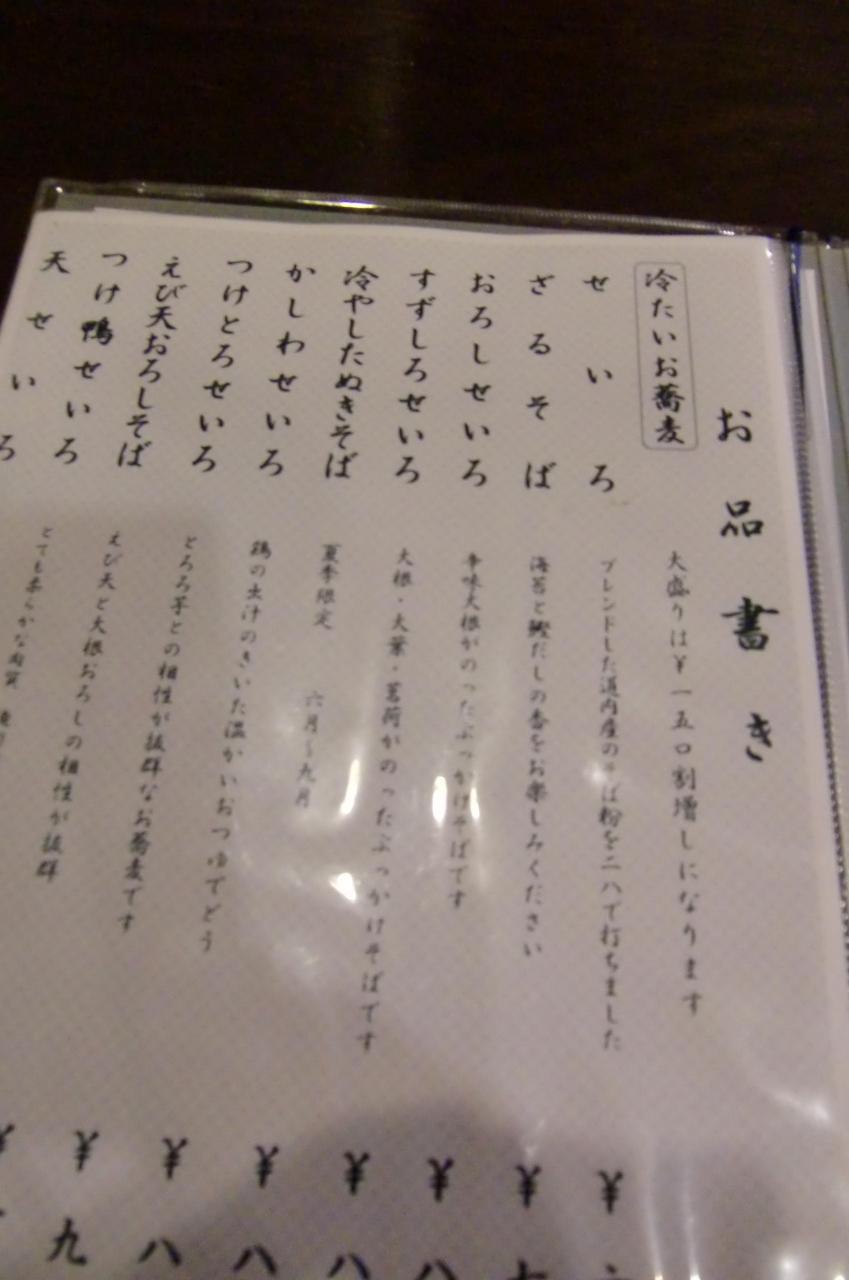 お品書き
冷たいお蕎麦
大盛りは¥一五〇割増しになります
せいろ
ブレンドした道内産のそば粉を二八で打ちました
¥
ざるそば
海苔と鰹だしの香をお楽しみください
¥七
おろしせいろ
辛味大根がのったぶっかけそばです
¥八
すずしろせいろ
大根・大葉・茗荷がのったぶっかけそばです
¥八
冷やしたぬきそば
夏季限定 六月〜九月
¥八
かしわせいろ
鶏の出汁のきいた温かいおつゆでどう
¥八
つけとろせいろ
とろろ芋との相性が抜群なお蕎麦です
¥九
えび天おろしそば
えび天と大根おろしの相性が抜群
¥
つけ鴨せいろ
とても柔らかな肉質
天せいろ